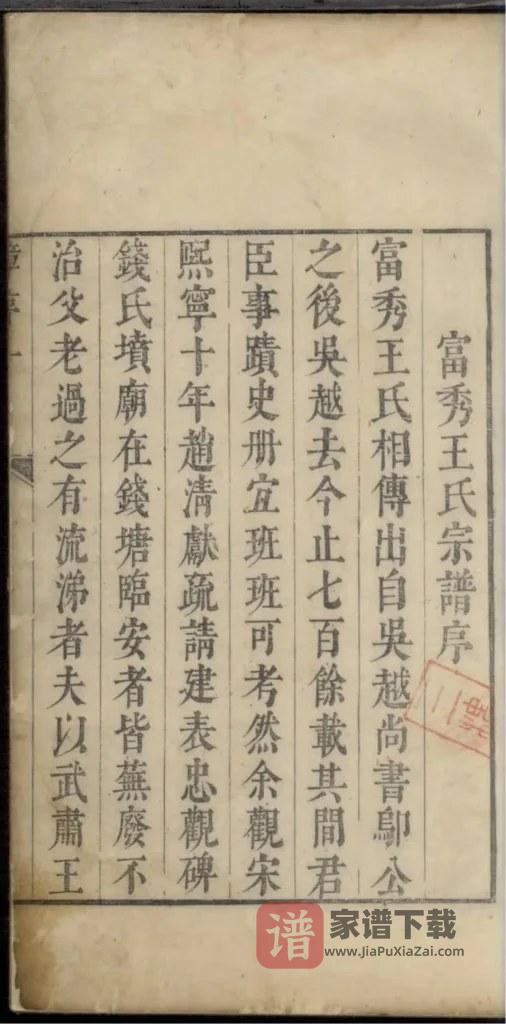 富秀王氏宗譜序
富秀王氏相傳出自吳越尚書鄔公
之後吳越去今止七百餘載其間君
臣事蹟史册宜班班可考然余觀宋
熙寧十年趙清獻疏請建表忠觀碑
錢氏墳廟在錢塘臨安者皆蕪廢不
治父老過之有流涕者夫以武肅王
谱 家谱下载
www.JiaPuXiaZai.com